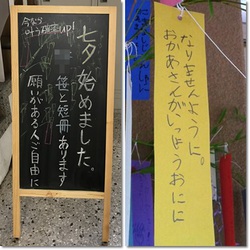 今なら
叶う確率up!
七夕始めました。
笹と短冊あります
願いがある人ご自由に
おかあさんがいっしょうおにに
なりませんように。